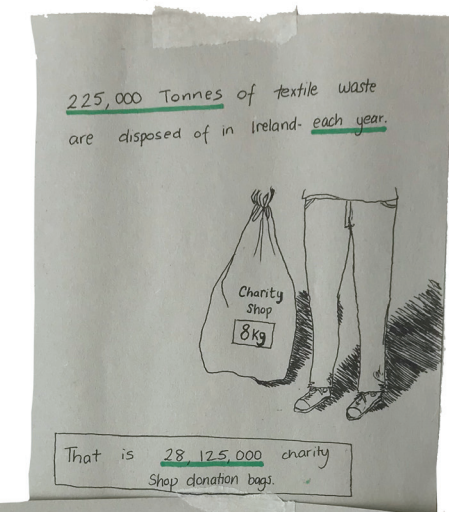 225,000 Tonnes of textile waste
are disposed of in Ireland- each year.
Charity
Shop
8kg
That is 28,125,000 charity
Shop donation bags.